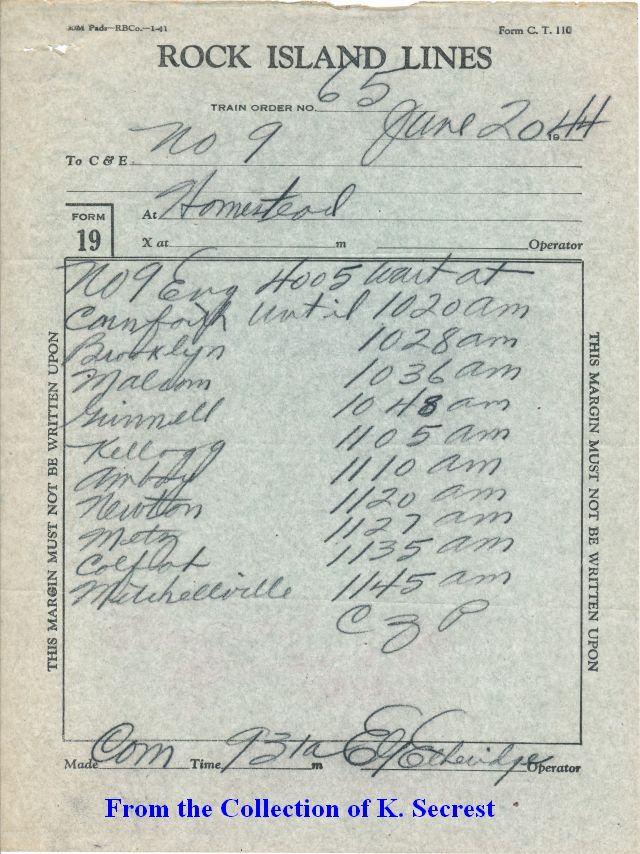 30M Pads—RBCo.—1-41 Form C. T. 110
ROCK ISLAND LINES
TRAIN ORDER NO. 65
June 20 1944
To C & E No 9
FORM 19
At Homestead
X at m Operator
No 9 Eng 4005 wait at
Carnforth until 1020 am
Brooklyn 1028 am
Malcom 1036 am
Grinnell 1048 am
Kellogg 1105 am
Amboy 1110 am
Newton 1120 am
Metz 1127 am
Colfax 1135 am
Mitchellville 1145 am
C Z P
THIS MARGIN MUST NOT BE WRITTEN UPON
THIS MARGIN MUST NOT BE WRITTEN UPON
Made Com Time 931a m E Etheridge Operator
From the Collection of K. Secrest